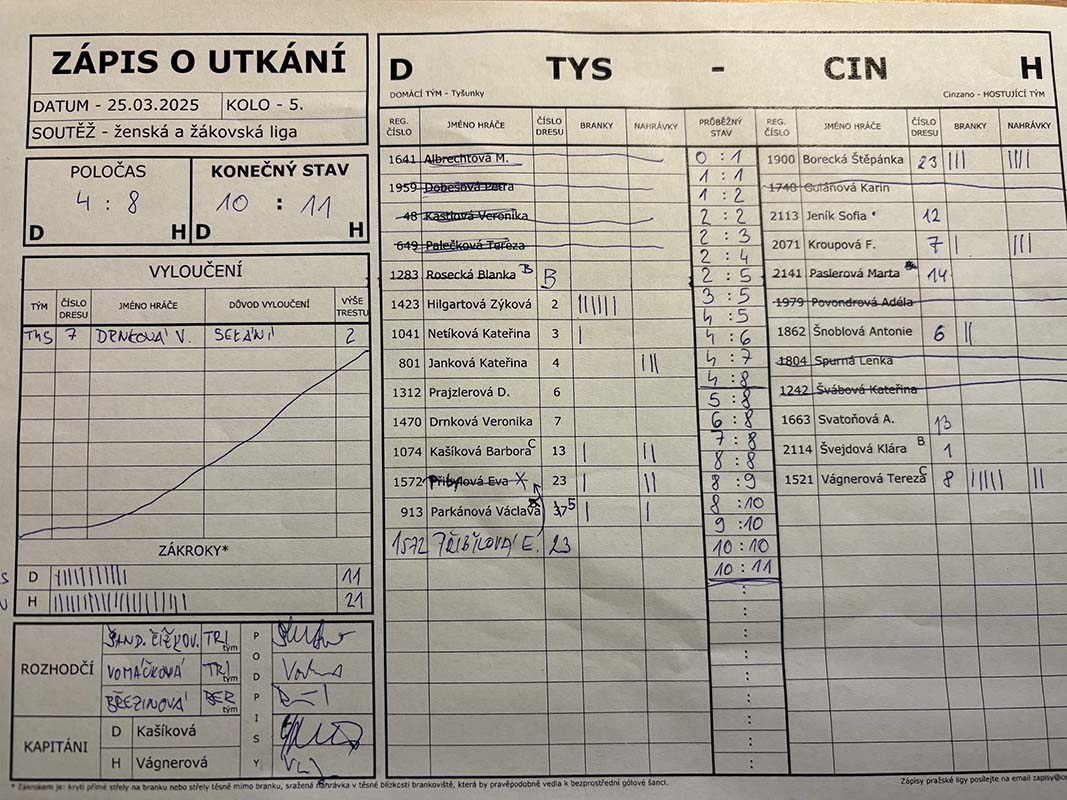 ZÁPIS O UTKÁNÍ
DATUM - 25.03.2025 KOLO - 5.
SOUTĚŽ - ženská a žákovská liga
POLOČAS KONEČNÝ STAV
4 : 8 10 : 11
D H D H
VYLOUČENÍ
TÝM ČÍSLO DRESU JMÉNO HRÁČE DŮVOD VYLOUČENÍ VÝŠE TRESTU
TYS 7 DRNKOVÁ V. SEKÁNÍ 2
ZÁKROKY*
D 11
H 21
ROZHODČÍ
ŠAND. ČÍŽKOV. TRI tým
VOMÁČKOVÁ TRI tým
BŘEZINOVÁ BER tým
PODPISY
KAPITÁNI
D Kašíková
H Vágnerová
D TYS - CIN H
DOMÁCÍ TÝM - Tyšunky Cinzano - HOSTUJÍCÍ TÝM
REG. ČÍSLO JMÉNO HRÁČE ČÍSLO DRESU BRANKY NAHRÁVKY PRŮBĚŽNÝ STAV REG. ČÍSLO JMÉNO HRÁČE ČÍSLO DRESU BRANKY NAHRÁVKY
1641 Albrechtová M.
1959 Dobešová Petra
48 Kastlová Veronika
649 Palečková Tereza
1283 Rosecká Blanka B B
1423 Hilgartová Zýková 2 ||||||
1041 Netíková Kateřina 3 |
801 Janková Kateřina 4 |||
1312 Prajzlerová D. 6
1470 Drnková Veronika 7
1074 Kašíková Barbora C 13 | ||
1572 Přibylová Eva X 23 | ||
913 Parkánová Václava 5 | |
1572 PŘIBYLOVÁ E. 23
0 : 1
1 : 1
1 : 2
2 : 2
2 : 3
2 : 4
2 : 5
3 : 5
4 : 5
4 : 6
4 : 7
4 : 8
5 : 8
6 : 8
7 : 8
8 : 8
8 : 9
8 : 10
9 : 10
10 : 10
10 : 11
1900 Borecká Štěpánka 23 ||| ||||
1748 Gulánová Karin
2113 Jeník Sofia 12
2071 Kroupová F. 7 | |||
2141 Paslerová Marta 14
1979 Povondrová Adéla
1862 Šnoblová Antonie 6 ||
1804 Spurná Lenka
1242 Švábová Kateřina
1663 Svatoňová A. 13
2114 Švejdová Klára B 1
1521 Vágnerová Tereza C 8 ||||| ||
* Zákrokem je: krytí přímé střely na branku nebo střely těsně mimo branku, sražená nahrávka v těsné blízkosti brankoviště, která by pravěpodobně vedla k bezprostřední gólové šanci.
Zápisy pražské ligy posílejte na email